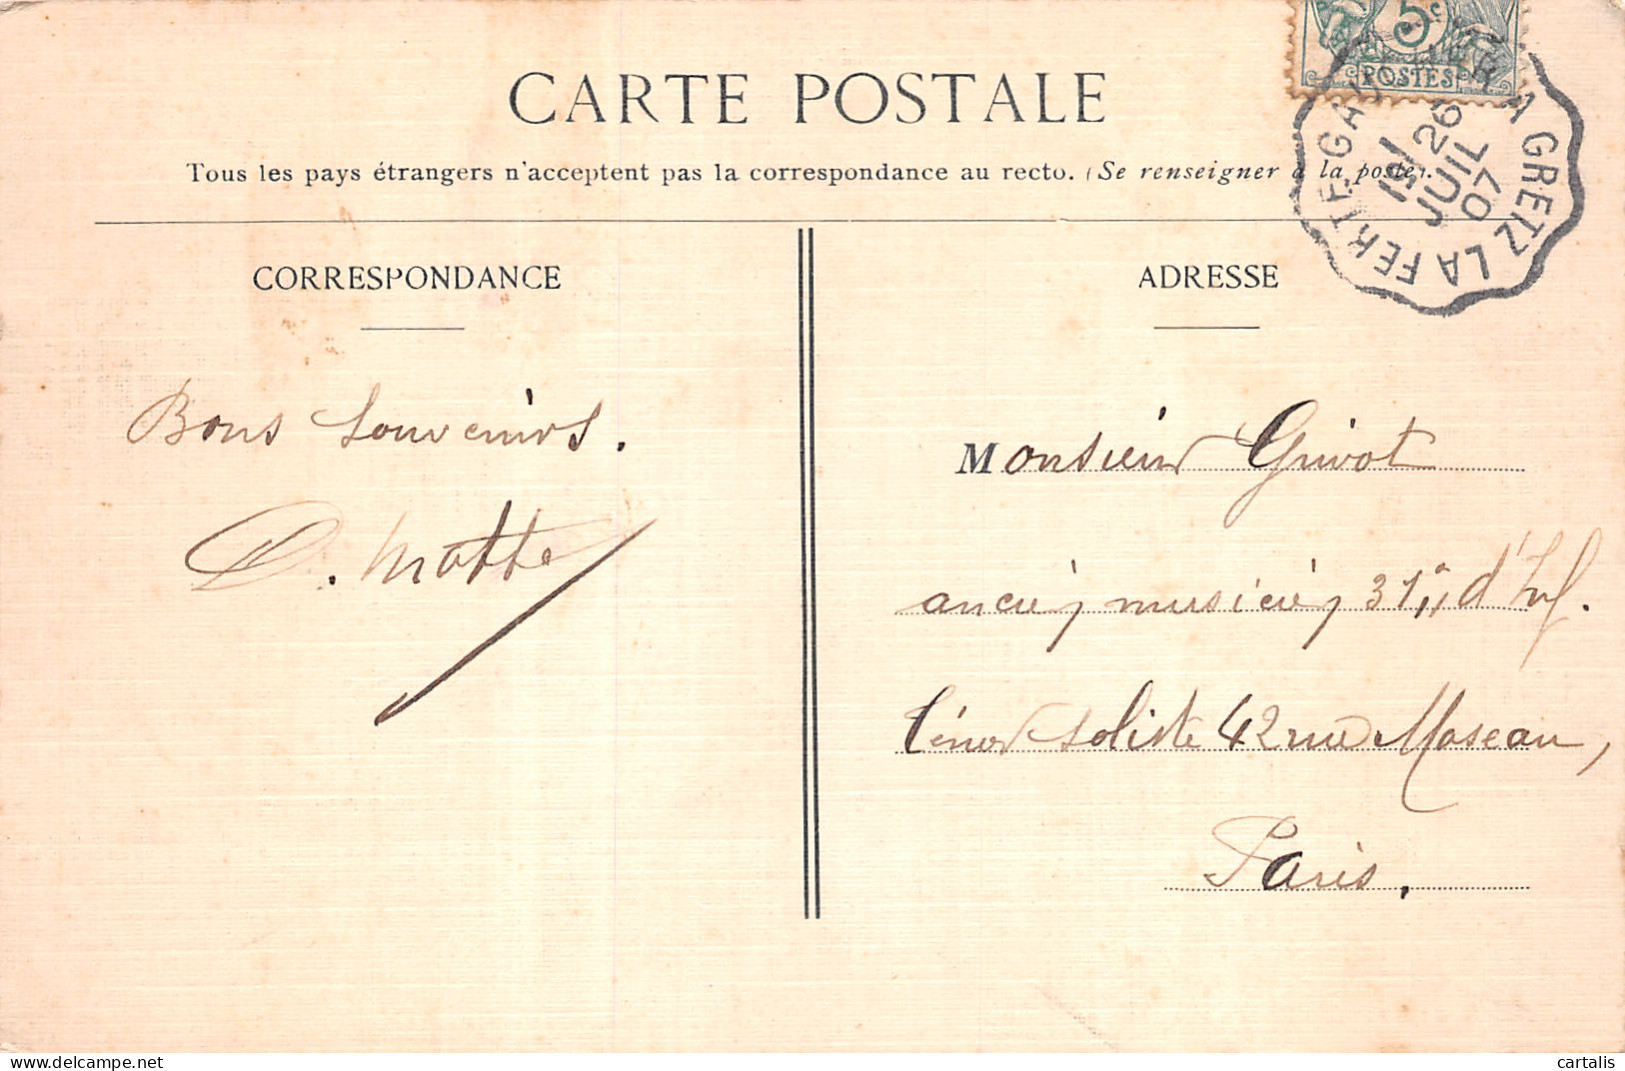 5c
POSTES
CARTE POSTALE
Tous les pays étrangers n'acceptent pas la correspondance au recto. (Se renseigner à la poste).
LA FERTE-GAUCHER A GRETZ
26
JUIL
07
CORRESPONDANCE
ADRESSE
Bons souvenirs.
D. Motte
Monsieur Grivot
ancien musicien 31e d'Inf.
ténor soliste 42 rue
Paris.
cartalis
delcampe.net